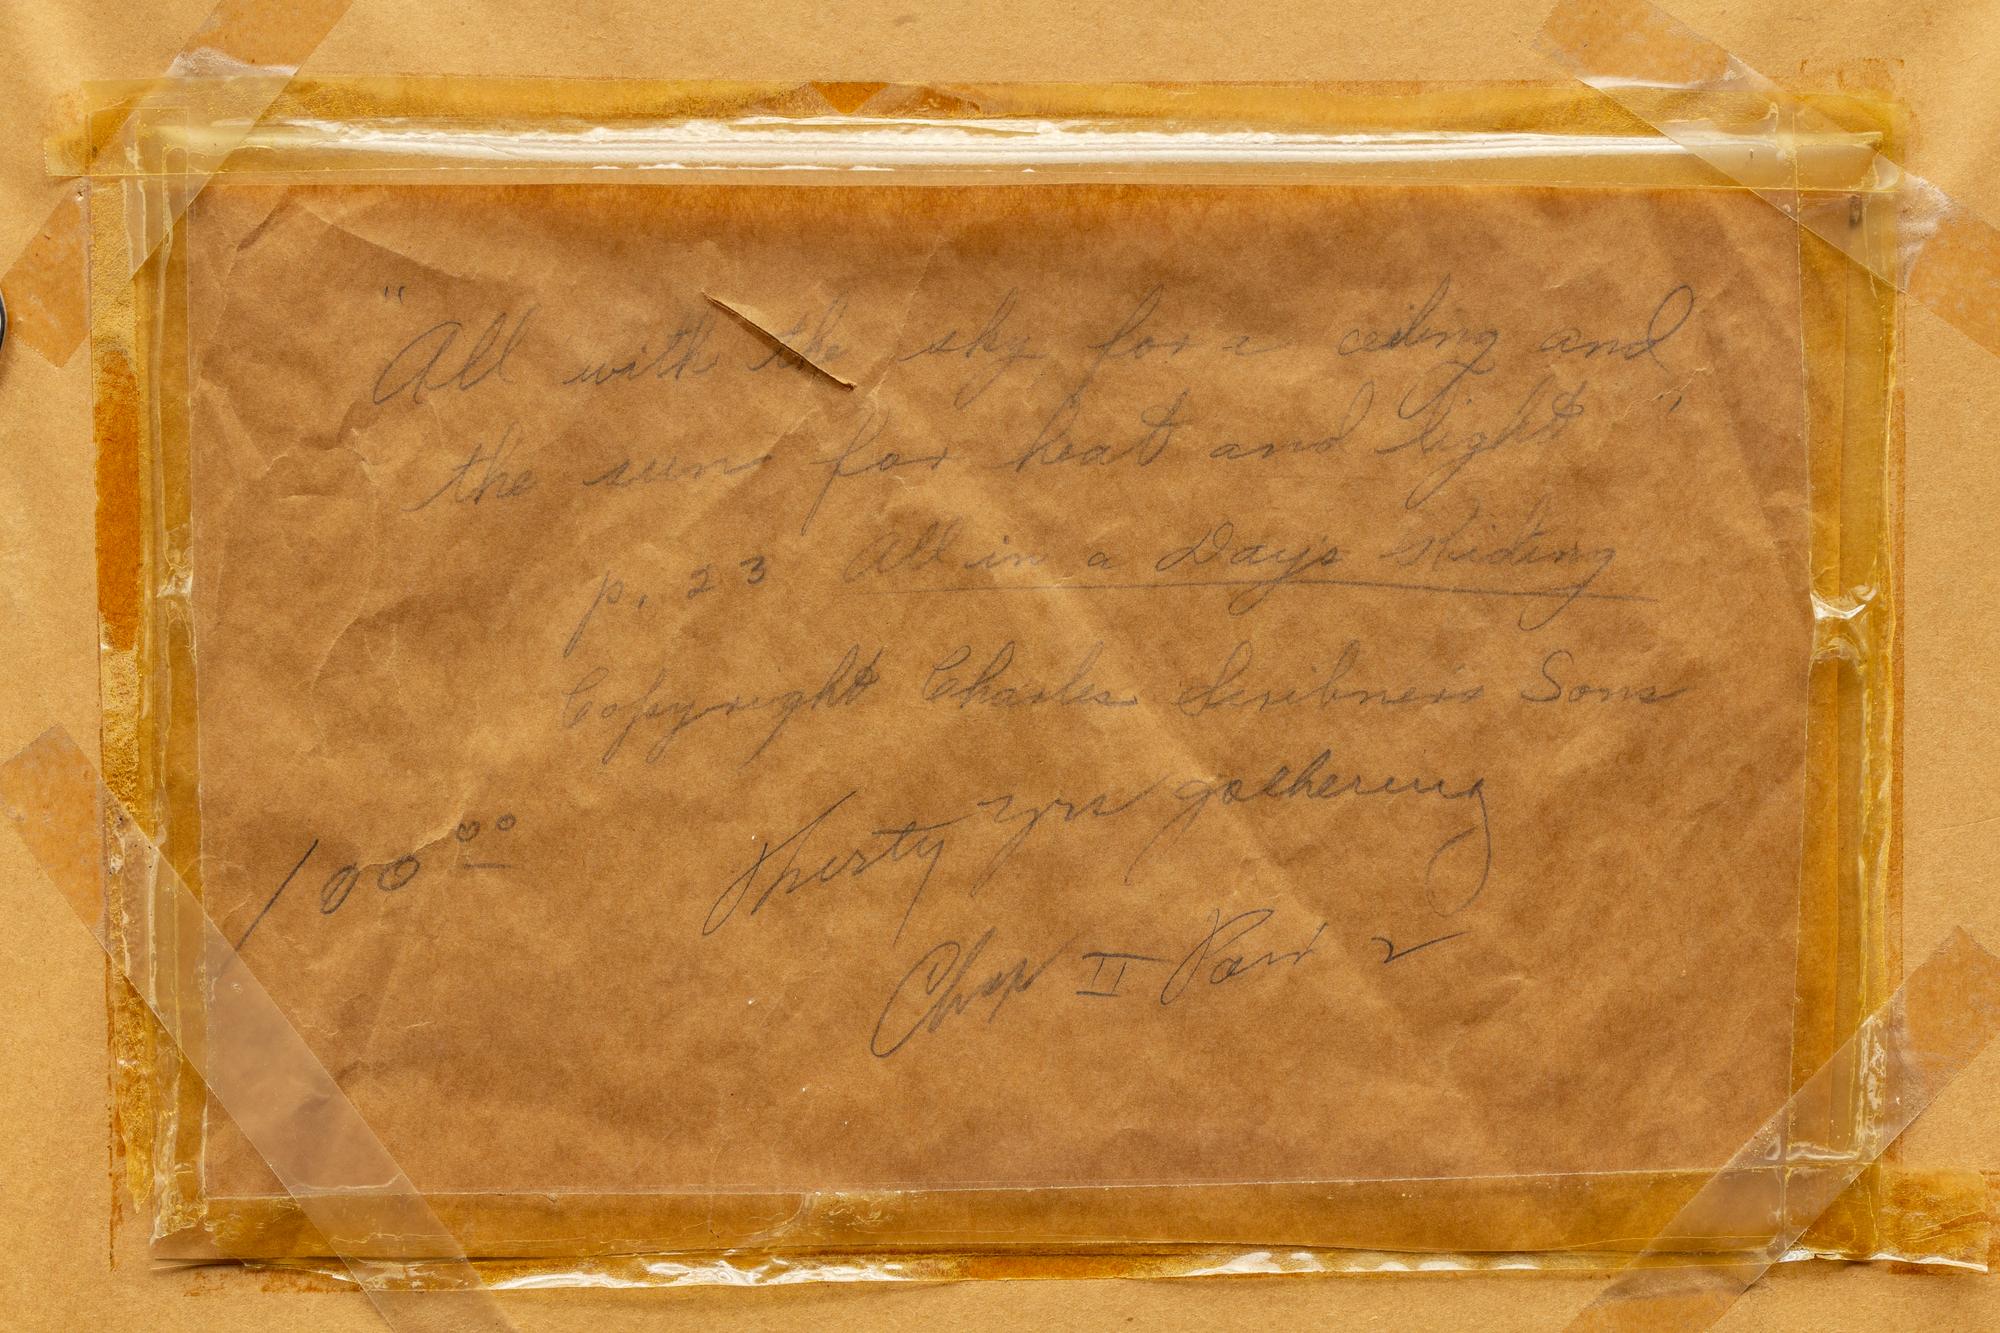 "All with the sky for a ceiling and
the sun for heat and light"
p. 23 All in a Days Riding
Copyright Charles Scribners Sons
Thirty yrs gathering
100.00
Chap II Part 2